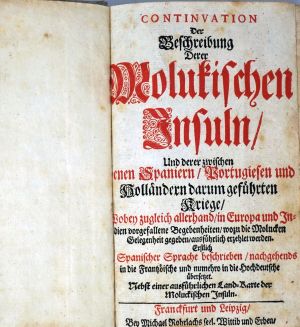 CONTINVATION
Der
Beschreibung
Derer
Molukischen
Insuln/
Und derer zwischen
enen Spaniern/ Portugiesen und
Holländern darum geführten
Kriege/
Wobey zugleich allerhand/ in Europa und In-
dien vorgefallene Begebenheiten/ wozu die Molucken
Gelegenheit gegeben/ ausführlich erzehlet werden.
Erstlich
Spanischer Sprache beschrieben/ nachgehends
in die Frantzösische und numehro in die Hochdeutsche
übersetzet.
Nebst einer ausführlichen Land-Karte der
Moluckischen Insuln.
Franckfurt und Leipzig/
Bey Michael Rohrlachs seel. Wittib und Erben/